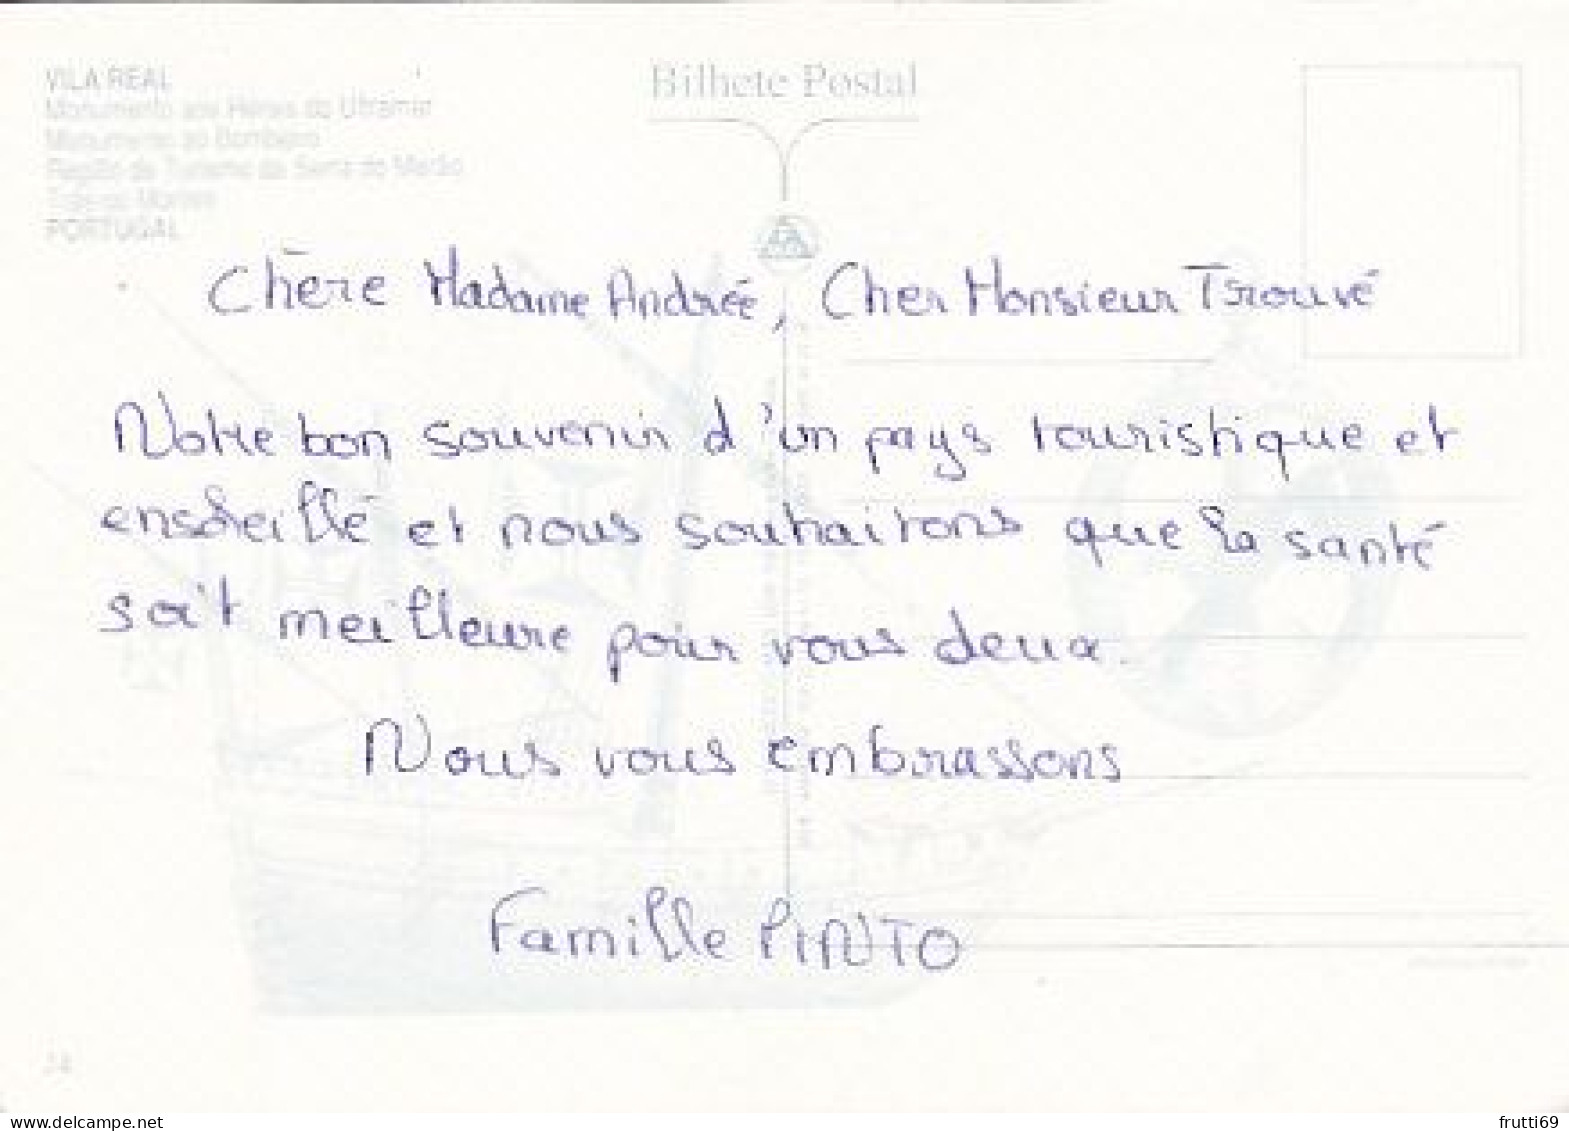 VILA REAL
Monumento aos Heróis do Ultramar
Monumento ao Bombeiro
Região de Turismo da Serra do Marão
PORTUGAL
Bilhete Postal
Chère Madame Andrée, Cher Monsieur Trouvé
Notre bon souvenir d'un pays touristique et
ensoleillé et nous souhaitons que la santé
soit meilleure pour vous deux.
Nous vous embrassons
Famille PINTO
frutti69